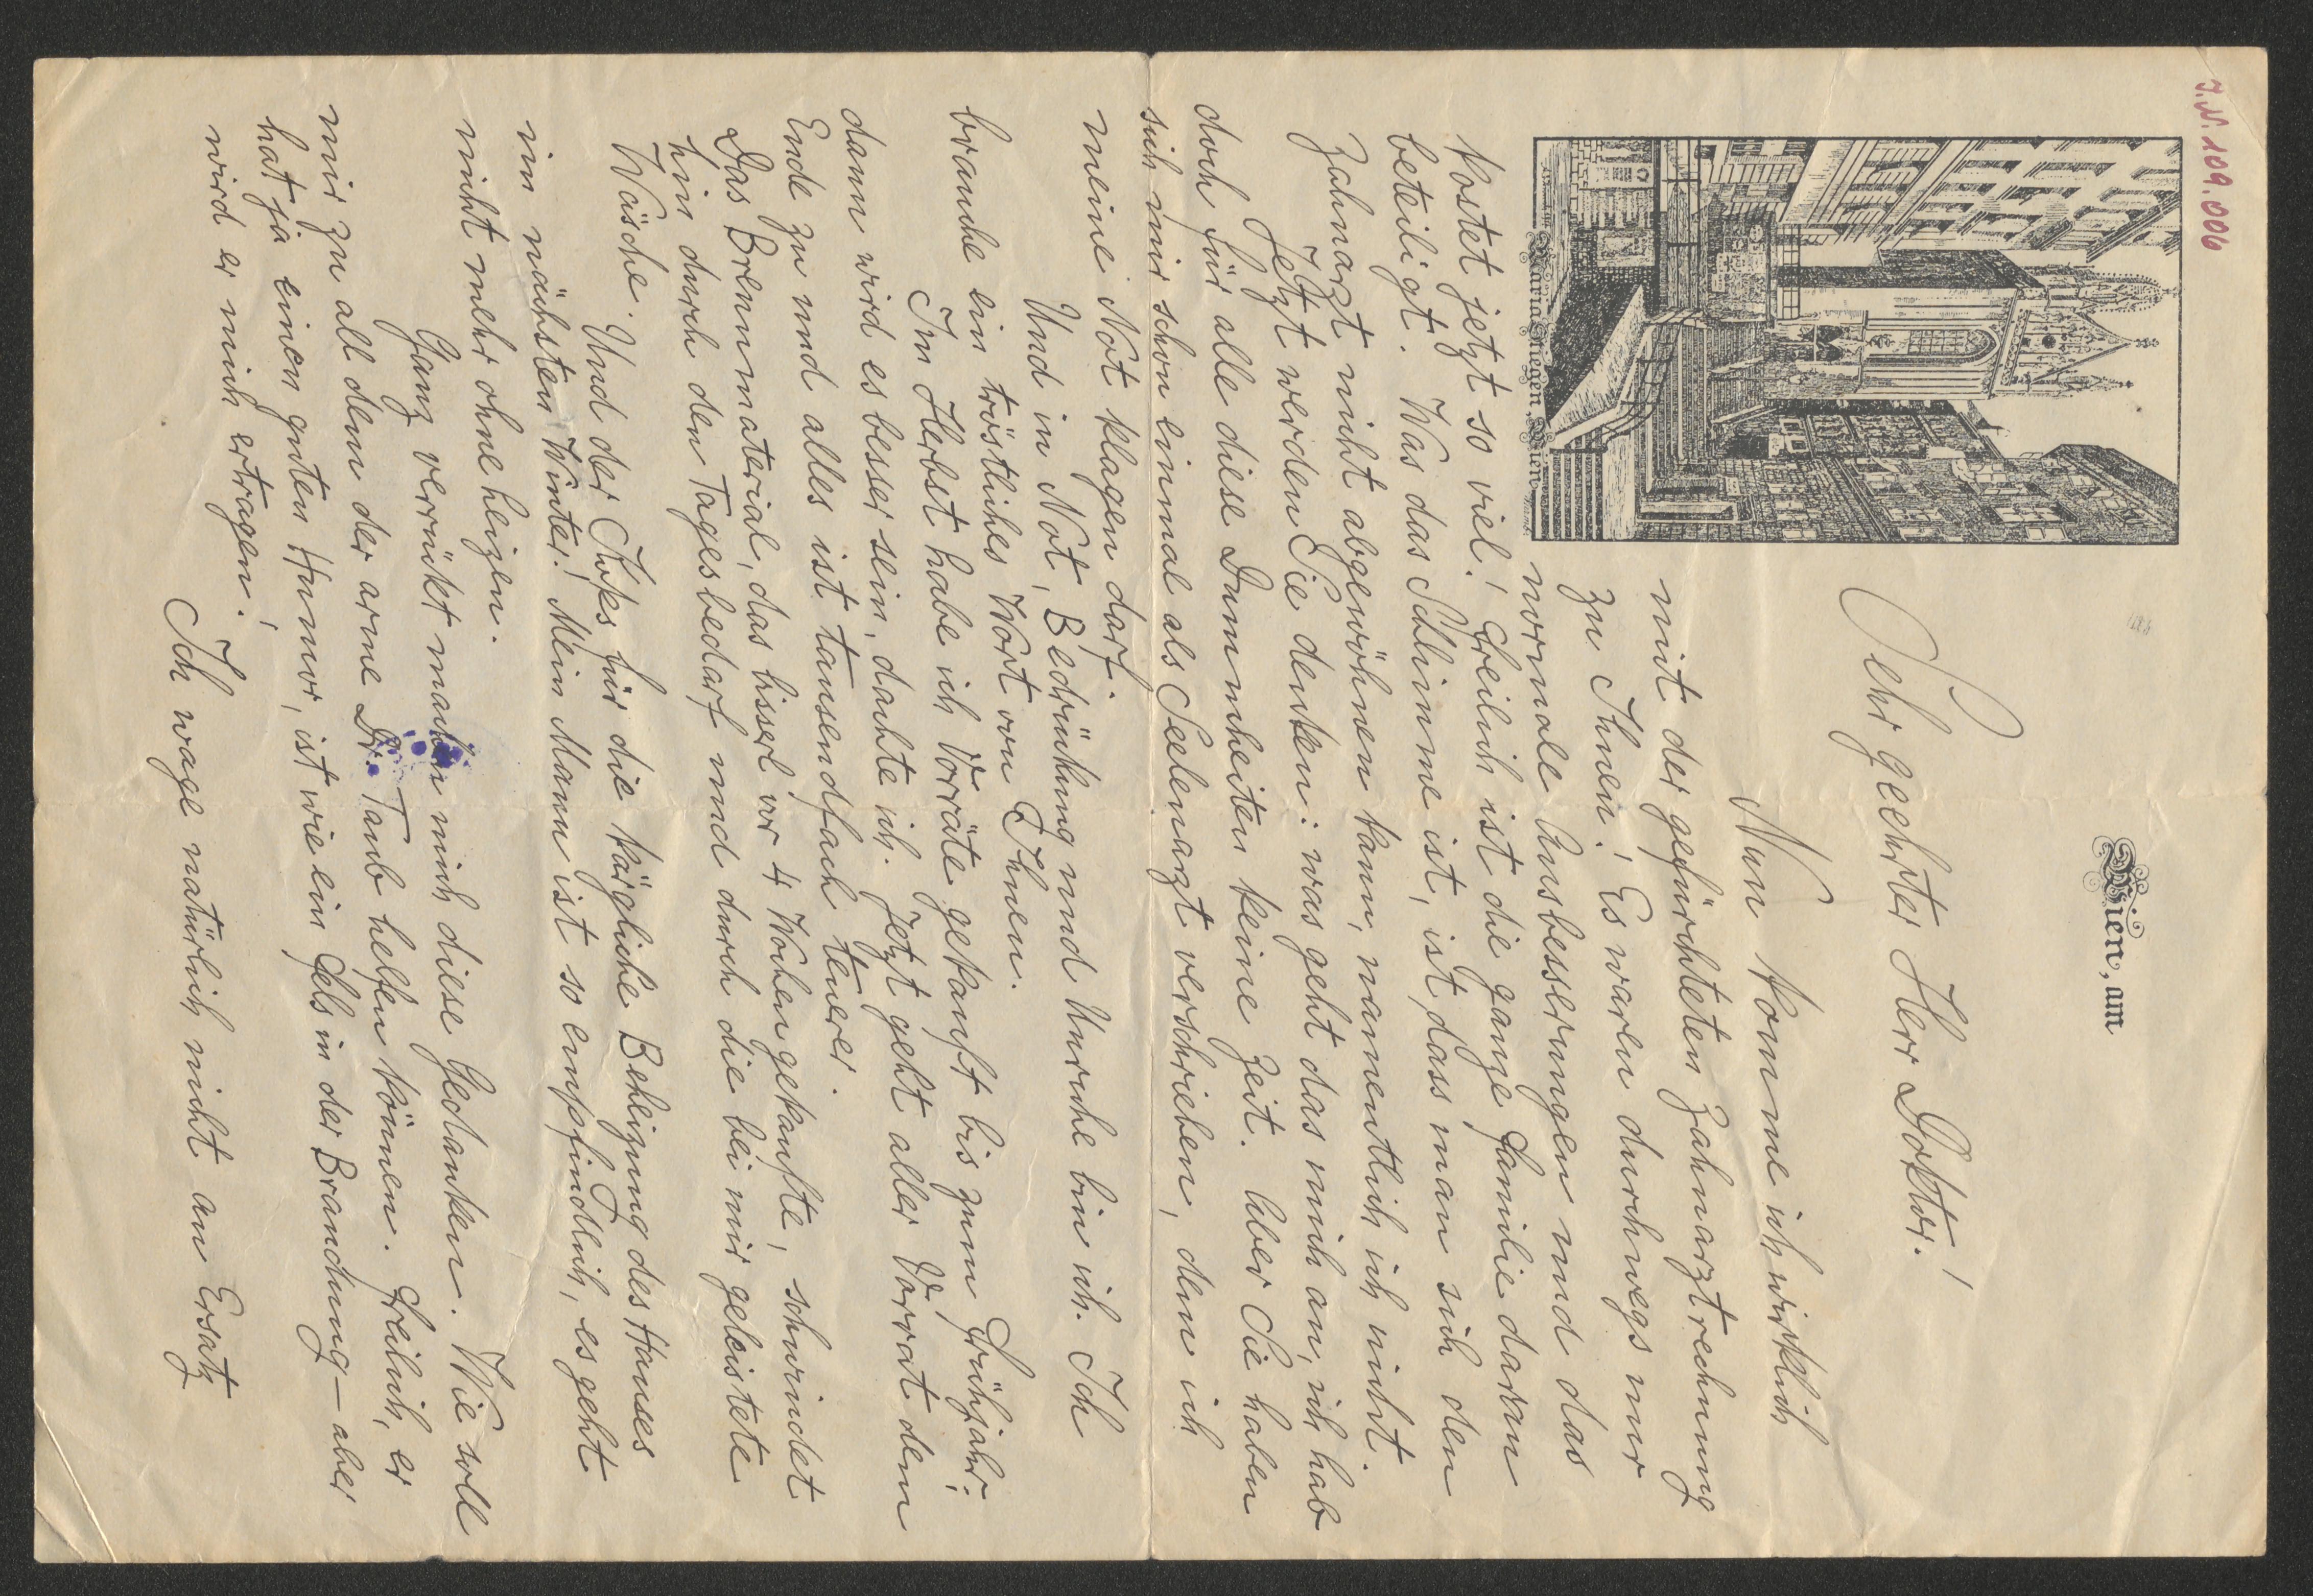 J.N. 109.006
Wien, am
Maria Stiegen, Wien
Sehr geehrter Herr Doktor!
Nun komme ich wirklich
mit der gefürchteten Zahnarztrechnung
zu Ihnen! Es waren durchwegs nur
normale Ausbesserungen und das
kostet jetzt so viel! Freilich ist die ganze Familie daran
beteiligt. Was das Schlimme ist, ist, dass man sich den
Zahnarzt nicht abgewöhnen kann, namentlich ich nicht.
Jetzt werden Sie denken: was geht das mich an, ich hab
doch für alle diese Dummheiten keine Zeit. Aber Sie haben
sich mir schon einmal als Seelenarzt verschrieben, dem ich
meine Not klagen darf.
Und in Not, Bedrückung und Unruhe bin ich. Ich
brauche ein tröstliches Wort von Ihnen.
Im Herbst habe ich Vorräte gekauft bis zum Frühjahr;
dann wird es besser sein, dachte ich. Jetzt geht aller Vorrat dem
Ende zu und alles ist tausendfach teurer.
Das Brennmaterial, das bisserl vor 4 Wochen gekaufte, schwindet
hin durch den Tagesbedarf und durch die bei mir geleistete
Wäsche.
Und der Koks für die kärgliche Beheizung des Hauses
im nächsten Winter! Mein Mann ist so empfindlich, es geht
nicht mehr ohne heizen.
Ganz verrückt machen mich diese Gedanken. Wie soll
mir zu all dem der arme Dr. Taub helfen können. Freilich, er
hat ja einen guten Humor, ist wie ein Fels in der Brandung – aber
wird er mich ertragen!
Ich wage natürlich nicht an Ersatz